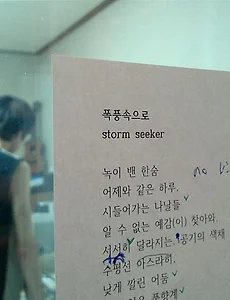 폭풍속으로
storm seeker
녹이 밴 한숨
어제와 같은 하루,
시들어가는 나날들
알 수 없는 예감(이) 찾아와.
서서히 달라지는, 공기의 색채
수평선 아스라히.
낮게 깔린 어둠
no